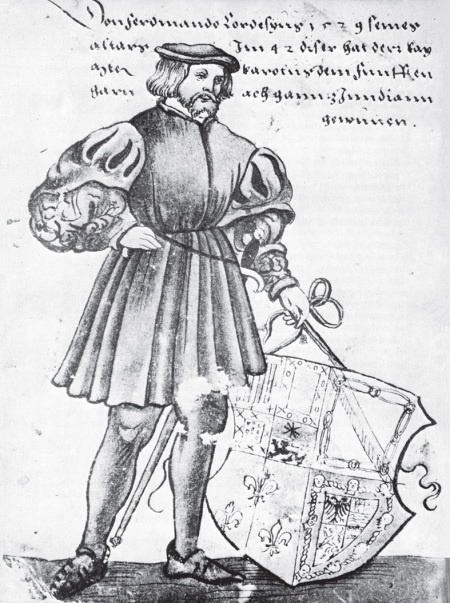 Don ferdinando Cordesyus 1529 seines
alters Im 42 diser hat derr kay
karolus dem funfften
ach gannz Inndiann
gewunen.